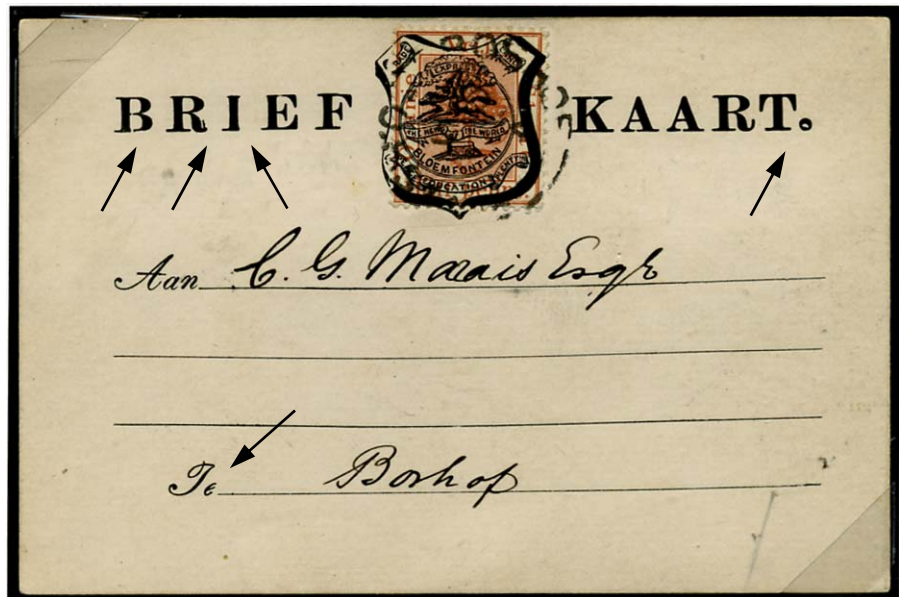 BRIEF KAART.
BLOEMFONTEIN
Aan C. G. Marais Esqr
Te Boshof